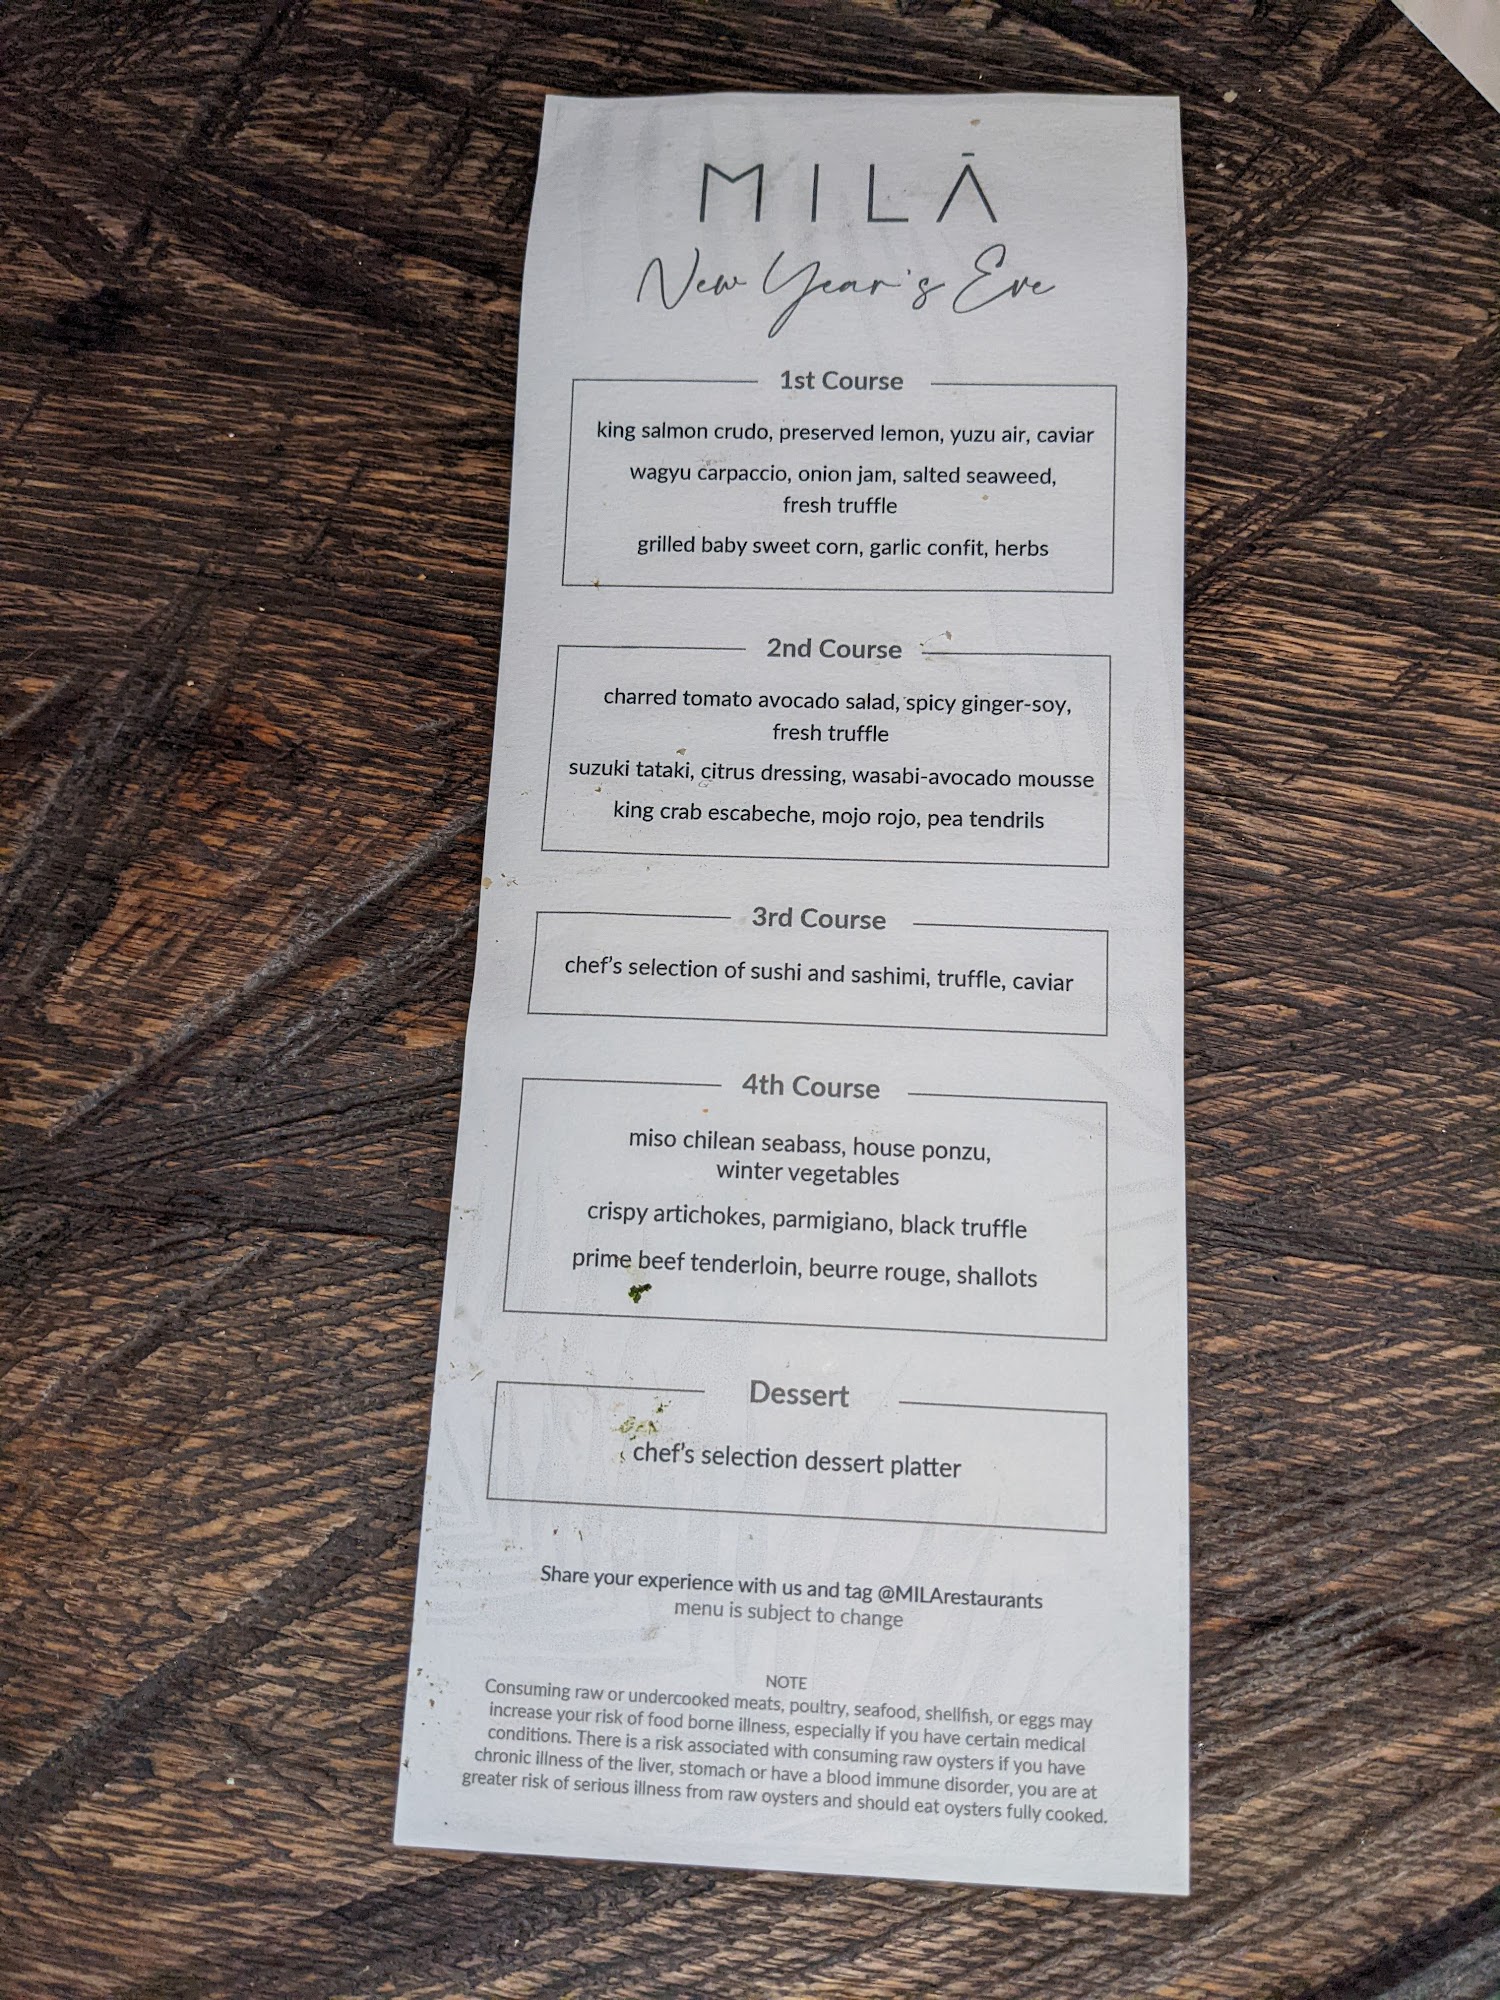 MILĀ
New Year's Eve
1st Course
king salmon crudo, preserved lemon, yuzu air, caviar
wagyu carpaccio, onion jam, salted seaweed,
fresh truffle
grilled baby sweet corn, garlic confit, herbs
2nd Course
charred tomato avocado salad, spicy ginger-soy,
fresh truffle
suzuki tataki, citrus dressing, wasabi-avocado mousse
king crab escabeche, mojo rojo, pea tendrils
3rd Course
chef's selection of sushi and sashimi, truffle, caviar
4th Course
miso chilean seabass, house ponzu,
winter vegetables
crispy artichokes, parmigiano, black truffle
prime beef tenderloin, beurre rouge, shallots
Dessert
chef's selection dessert platter
Share your experience with us and tag @MILArestaurants
menu is subject to change
NOTE
Consuming raw or undercooked meats, poultry, seafood, shellfish, or eggs may
increase your risk of food borne illness, especially if you have certain medical
conditions. There is a risk associated with consuming raw oysters if you have
chronic illness of the liver, stomach or have a blood immune disorder, you are at
greater risk of serious illness from raw oysters and should eat oysters fully cooked.